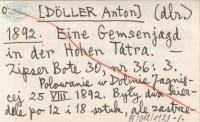 [DÖLLER Anton] (dbr.)
1892. Eine Gemsenjagd
in der Hohen Tatra.
Zipser Bote 30, nr 36: 3.
Polowanie w Dolinie Jagnię-
cej 25 VIII 1892. Były dwa kier-
dele po 12 i 18 sztuk, ale zastrze-